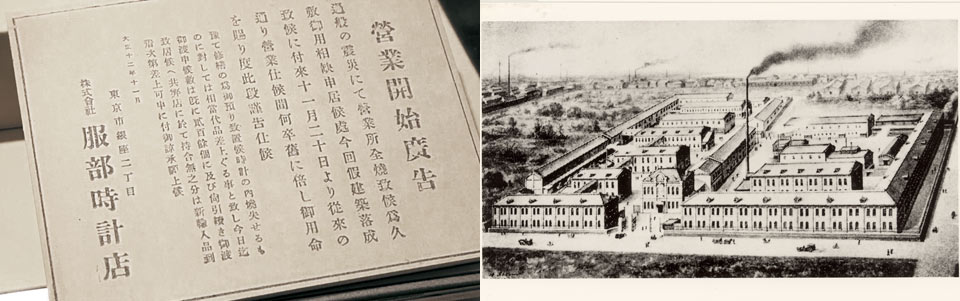 營業開始廣告
過般の震災にて營業所全燒致候爲久
敷御用相缺申居候處今囘假建築落成
致候に付來十一月二十日より從來の
通り營業仕候間何卒舊に倍し御用命
を賜り度此段謹告仕候
豫て修繕の爲御預り致置候時計の內燒失せるも
のに對しては相當代品差上ぐる事と致し今日迄
御渡申候數は旣に貳百餘個に及び尙引續き御渡
致居候へ共弊店に於て持合無之分は新輸入品到
着次第差上可申に付御諒承願上候
大正十二年十一月
東京市銀座二丁目
株式會社 服部時計店